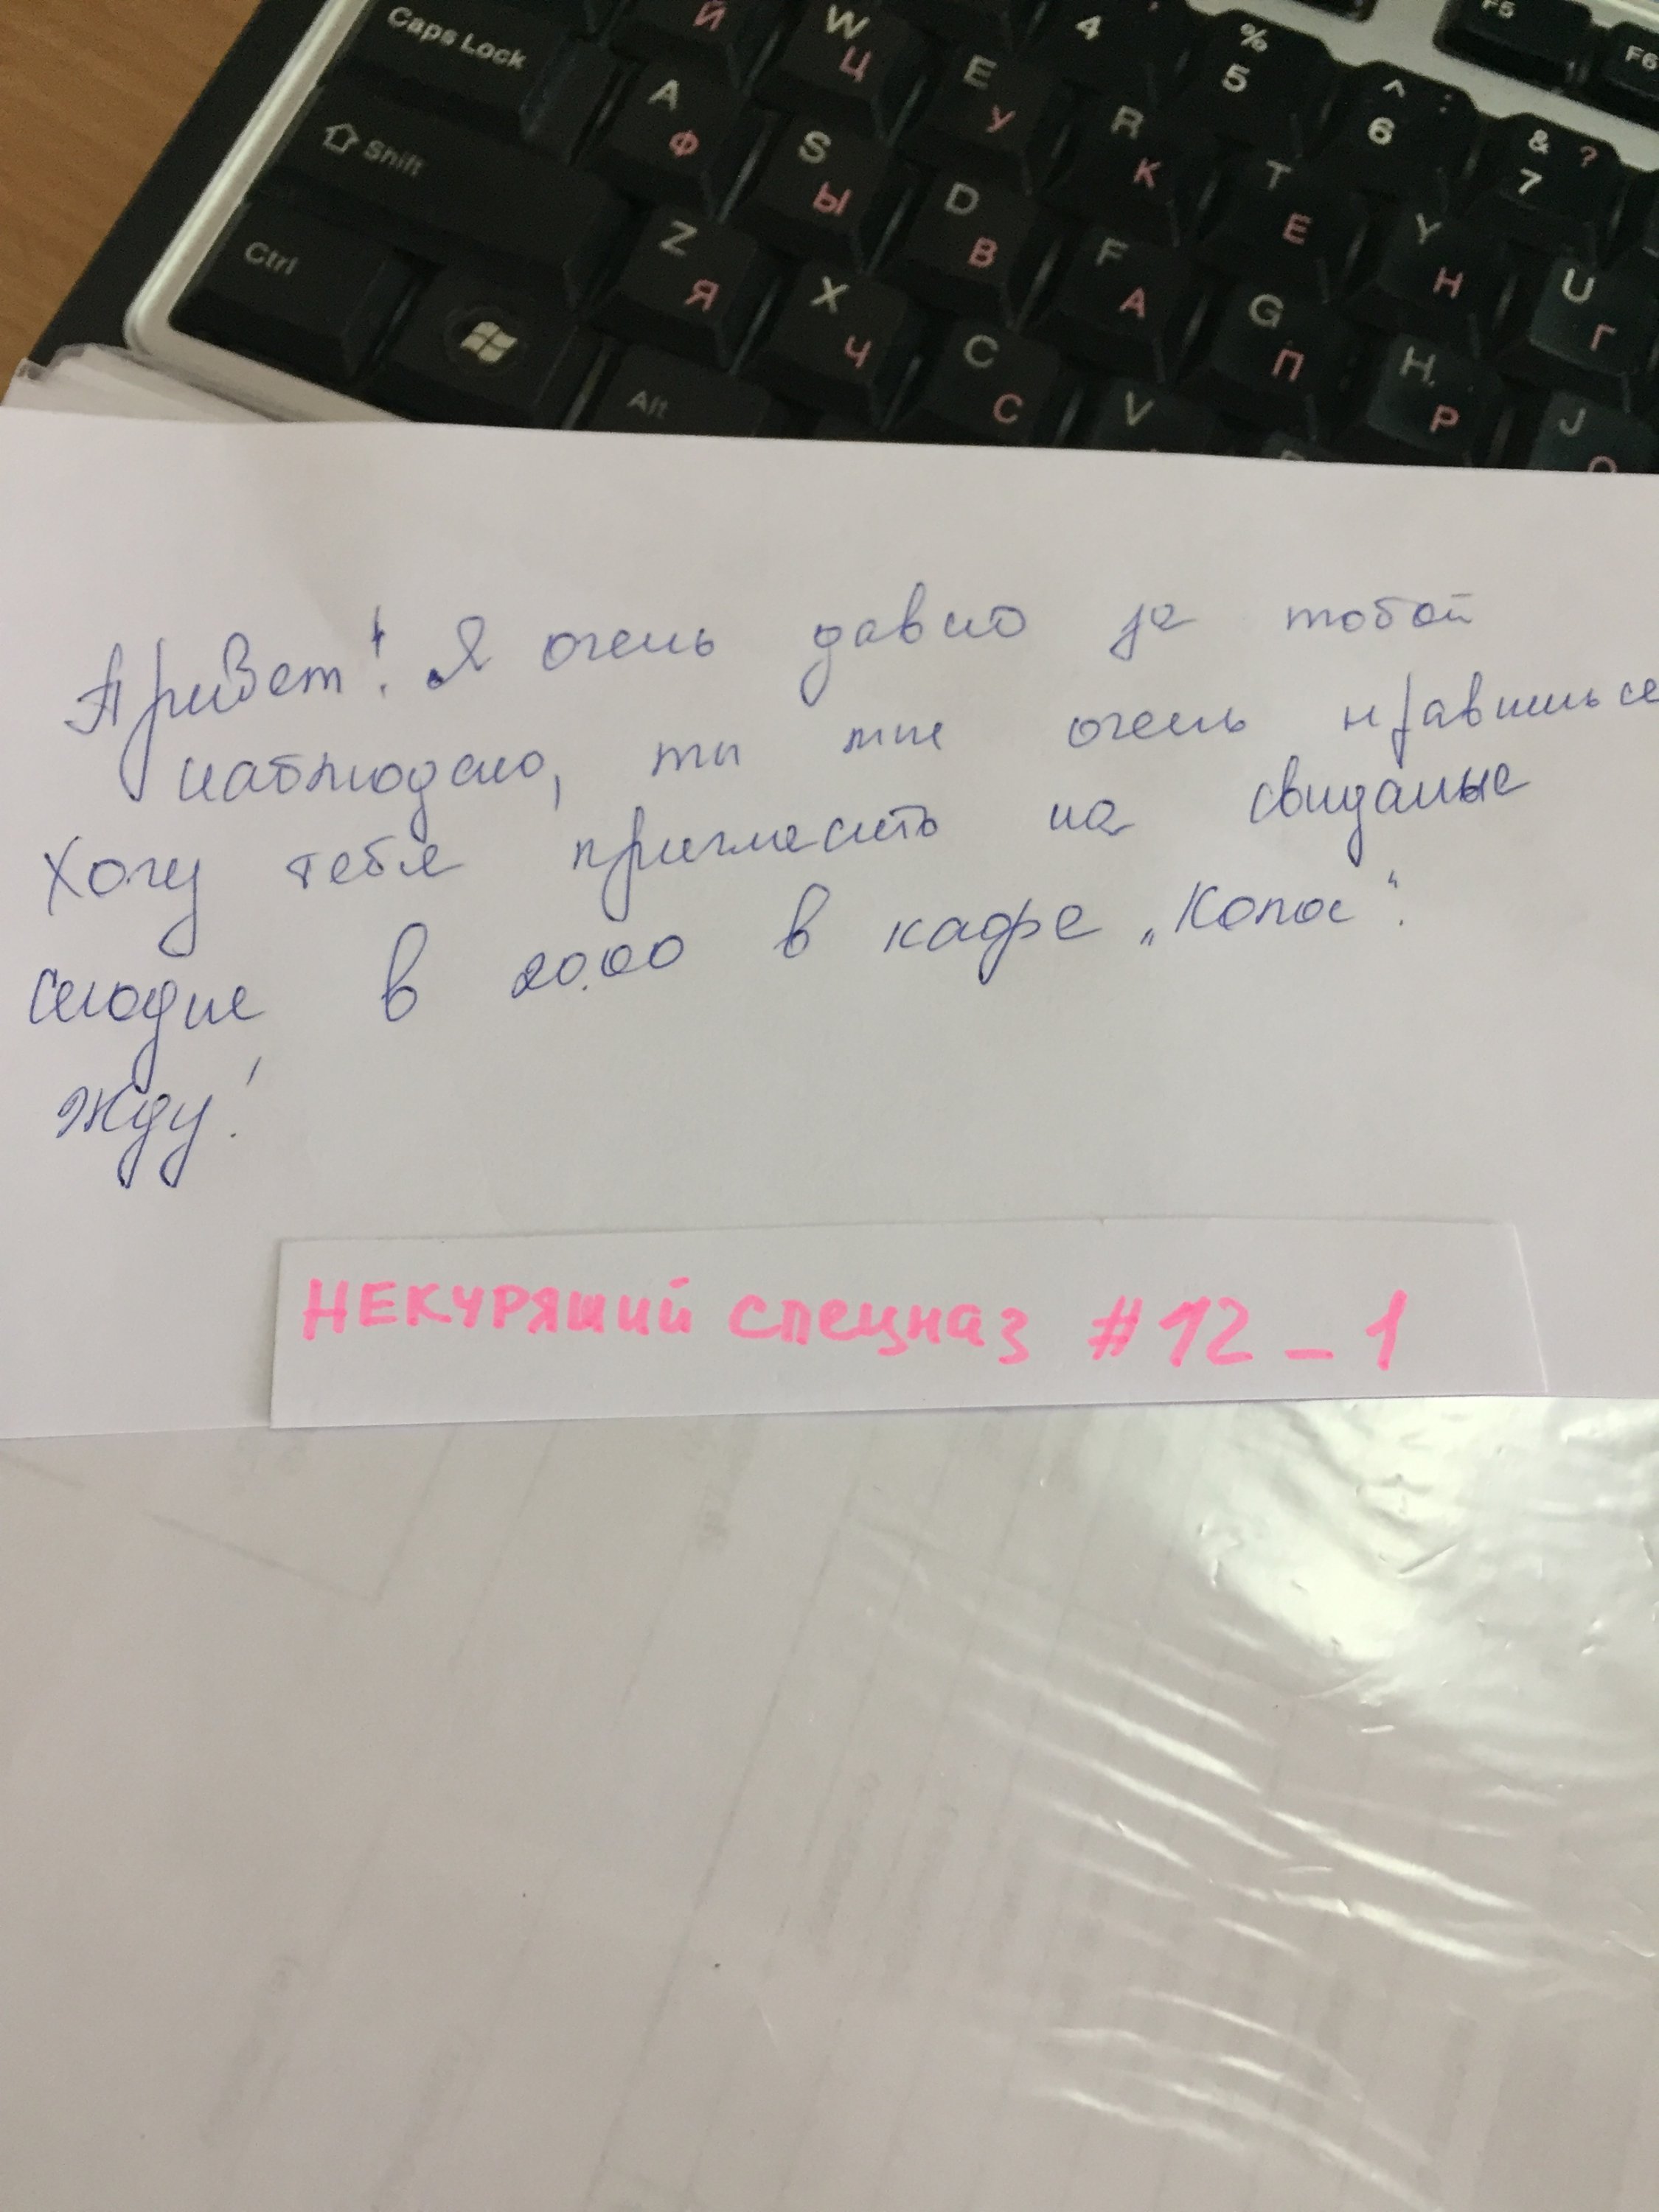 Caps Lock Й W Ц 4 % 5 F5 F6
Shift A Ф S Ы E У R К ^ : 6 & ? 7
Ctrl Z Я X Ч D В F А T Е Y Н U Г
Alt C С V G П H Р J О
Привет! Я очень давно за тобой
наблюдаю, ты мне очень нравишься
Хочу тебя пригласить на свиданье
сегодня в 20.00 в кафе „Колос“.
Жду!
НЕКУРЯЩИЙ СПЕЦНАЗ #12_1